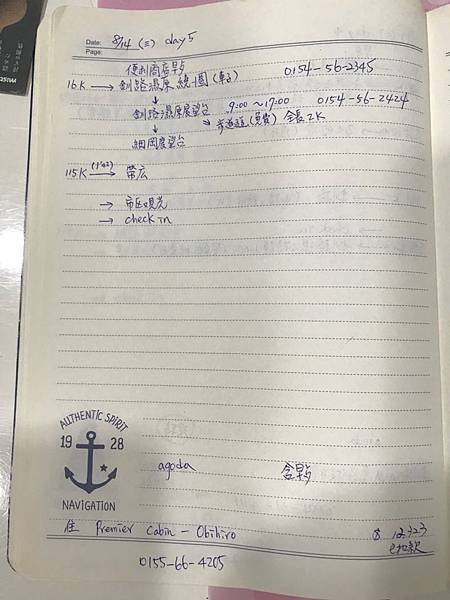 Date: 8/14 (三) day 5
Page:
便利商店早點
16K → 釧路濕原繞一圈(車子) 0154-56-2345
↓
釧路濕原展望台 9:00~17:00 0154-56-2424
↓ → 步道(免費) 全長2K
細岡展望台
115K (1'42) → 帶広
→ 市區觀光
→ check in
AUTHENTIC SPIRIT
19 28
NAVIGATION
agoda 含早點
住 Premier Cabin - Obihiro $ 12323
已扣款
0155-66-4205